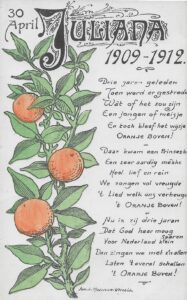 30
April
JULIANA
1909-1912.
Drie jaren geleden
Toen werd er gestreden
Wàt of het zou zijn
Een jongen of meisje
En toch bleef het wijsje
ORANJE BOVEN!
Daar kwam een Prinsesje
Een zeer aardig meiske
Heel lief en rein
We zongen vol vreugde
't Lied welk ons verheugde
't ORANJE BOVEN!
Nu in zij drie jaren
Dat God haar moog sparen
Voor Nederland klein
Dan zingen we met drieën
Laten 't overal schallen
't ORANJE BOVEN!